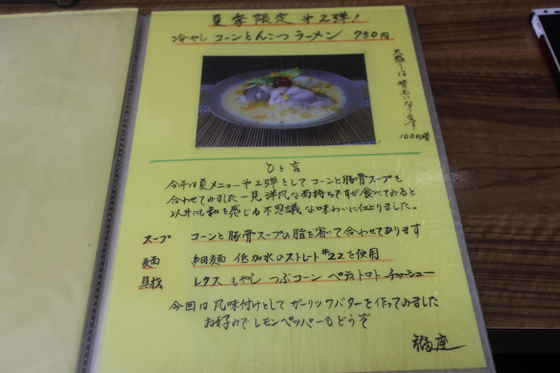 夏季限定 第2弾!
冷やし コーンとんこつラーメン 750円
大盛りは 替玉になります
100円増
ひと言
今年は夏メニュー第2弾として コーンと豚骨スープを
合わせてみました 一見 洋風な面持ちですが食べてみると
以外にも和を感じる不思議な味わいに仕上りました。
スープ コーンと豚骨スープの脂を省いて合わせてあります
麺 細麺 低加水のストレート#22を使用
具材 レタス もやし つぶコーン ペティトマト チャーシュー
今回は風味付けとして ガーリックバターを作ってみました
お好みでレモンペッパーもどうぞ
福座